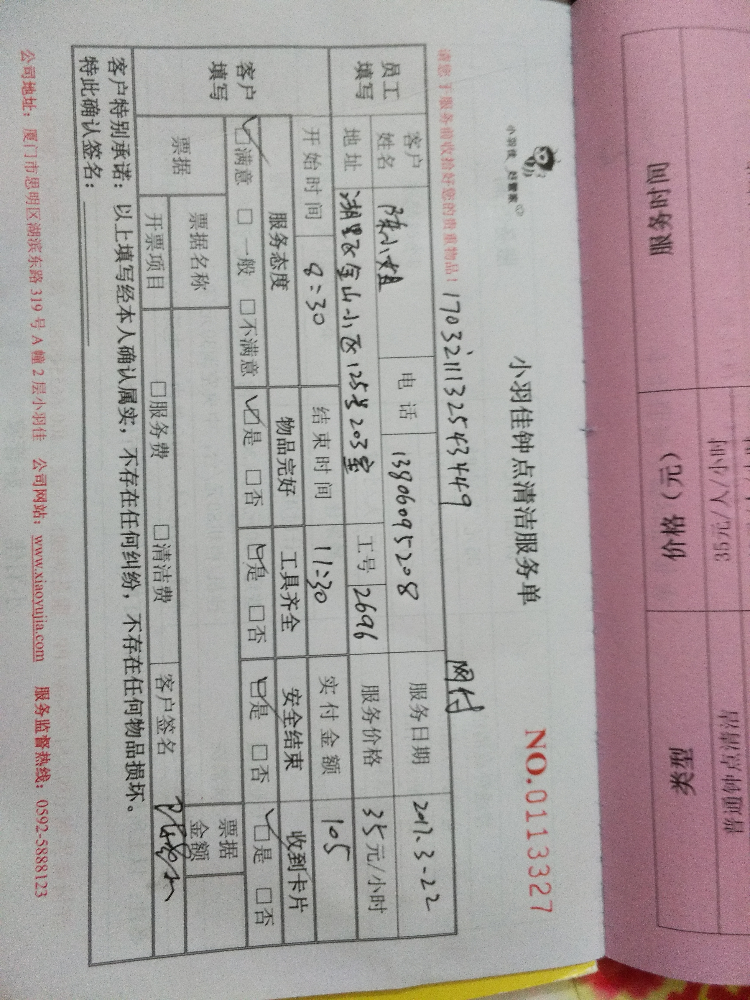 小羽佳 好管家
小羽佳钟点清洁服务单
NO.0113327
请您于服务前收拾好您的贵重物品!
170321113254344９
网付
员工填写
客户姓名 陈小姐 电话 13806095208 服务日期 2017.3-22
地址 湖里区金山小区125号203室 工号 2696 服务价格 35元/小时
开始时间 8:30 结束时间 11:30 实付金额 105
客户填写
服务态度 物品完好 工具齐全 安全结束 收到卡片
☑满意 □一般 □不满意 ☑是 □否 ☑是 □否 ☑是 □否 ☑是 □否
票据 票据名称 票据金额
开票项目 □服务费 □清洁费 客户签名
客户特别承诺：以上填写经本人确认属实，不存在任何纠纷，不存在任何物品损坏。
特此确认签名：
公司地址：厦门市思明区湖滨东路319号A幢2层小羽佳 公司网站：www.xiaoyujia.com 服务监督热线：0592-5888123
服务时间 价格（元） 类型
35元/人/小时